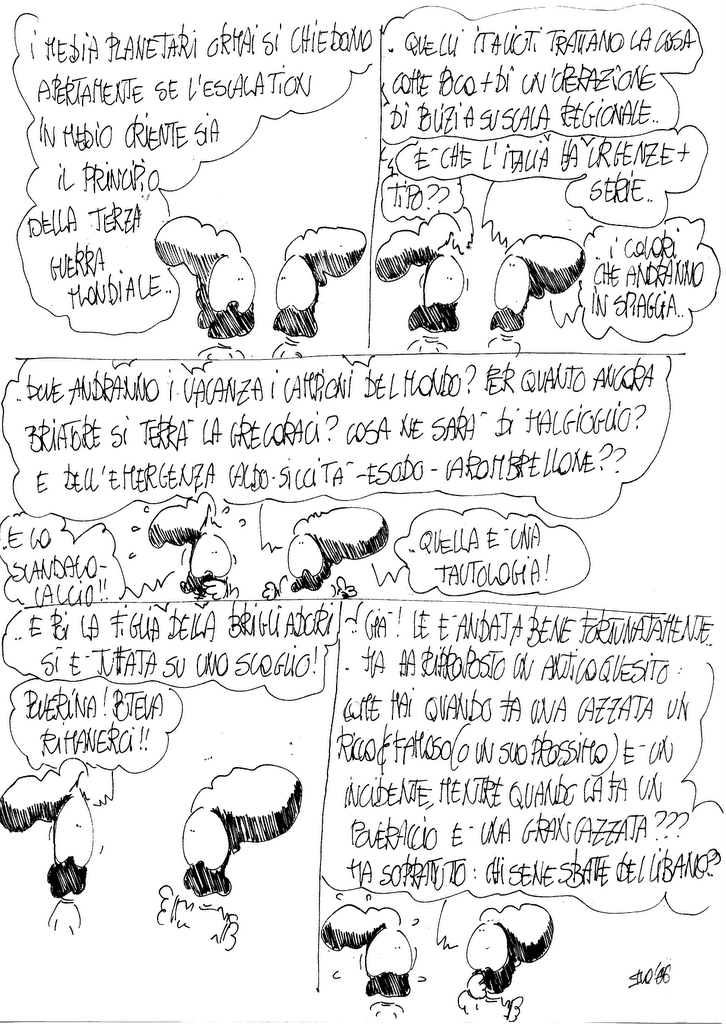 I MEDIA PLANETARI ORMAI SI CHIEDONO
APERTAMENTE SE L'ESCALATION
IN MEDIO ORIENTE SIA
IL PRINCIPIO
DELLA TERZA
GUERRA
MONDIALE..
.. QUELLI ITALIOTI TRATTANO LA COSA
COME POCO + DI UN'OPERAZIONE
DI PULIZIA SU SCALA REGIONALE..
E' CHE L'ITALIA HA URGENZE +
SERIE..
TIPO??
..I COLORI
CHE ANDRANNO
IN SPIAGGIA..
..DOVE ANDRANNO I VACANZA I CAMPIONI DEL MONDO? PER QUANTO ANCORA
BRIATORE SI TERRA' LA GREGORACI? COSA NE SARA' DI MALGIOGLIO?
E DELL'EMERGENZA CALDO-SICCITA'-ESODO-CAROMBRELLONE??
..E LO
SCANDALO-
CALCIO!!
..QUELLA E' UNA
TAUTOLOGIA!
..E POI LA FIGLIA DELLA BRIGLIADORI
SI E' TUFFATA SU UNO SCOGLIO!
POVERINA! POTEVA
RIMANERCI!!
..GIA'! LE E' ANDATA BENE FORTUNATAMENTE..
.. MA HA RIPROPOSTO UN ANTICO QUESITO:
COME MAI QUANDO FA UNA CAZZATA UN
RICCO & FAMOSO (O UN SUO PROSSIMO) E' UN
INCIDENTE, MENTRE QUANDO LA FA UN
POVERACCIO E' UNA GRAN CAZZATA???
MA SOPRATUTTO: CHI SE NE SBATTE DEL LIBANO??
'06